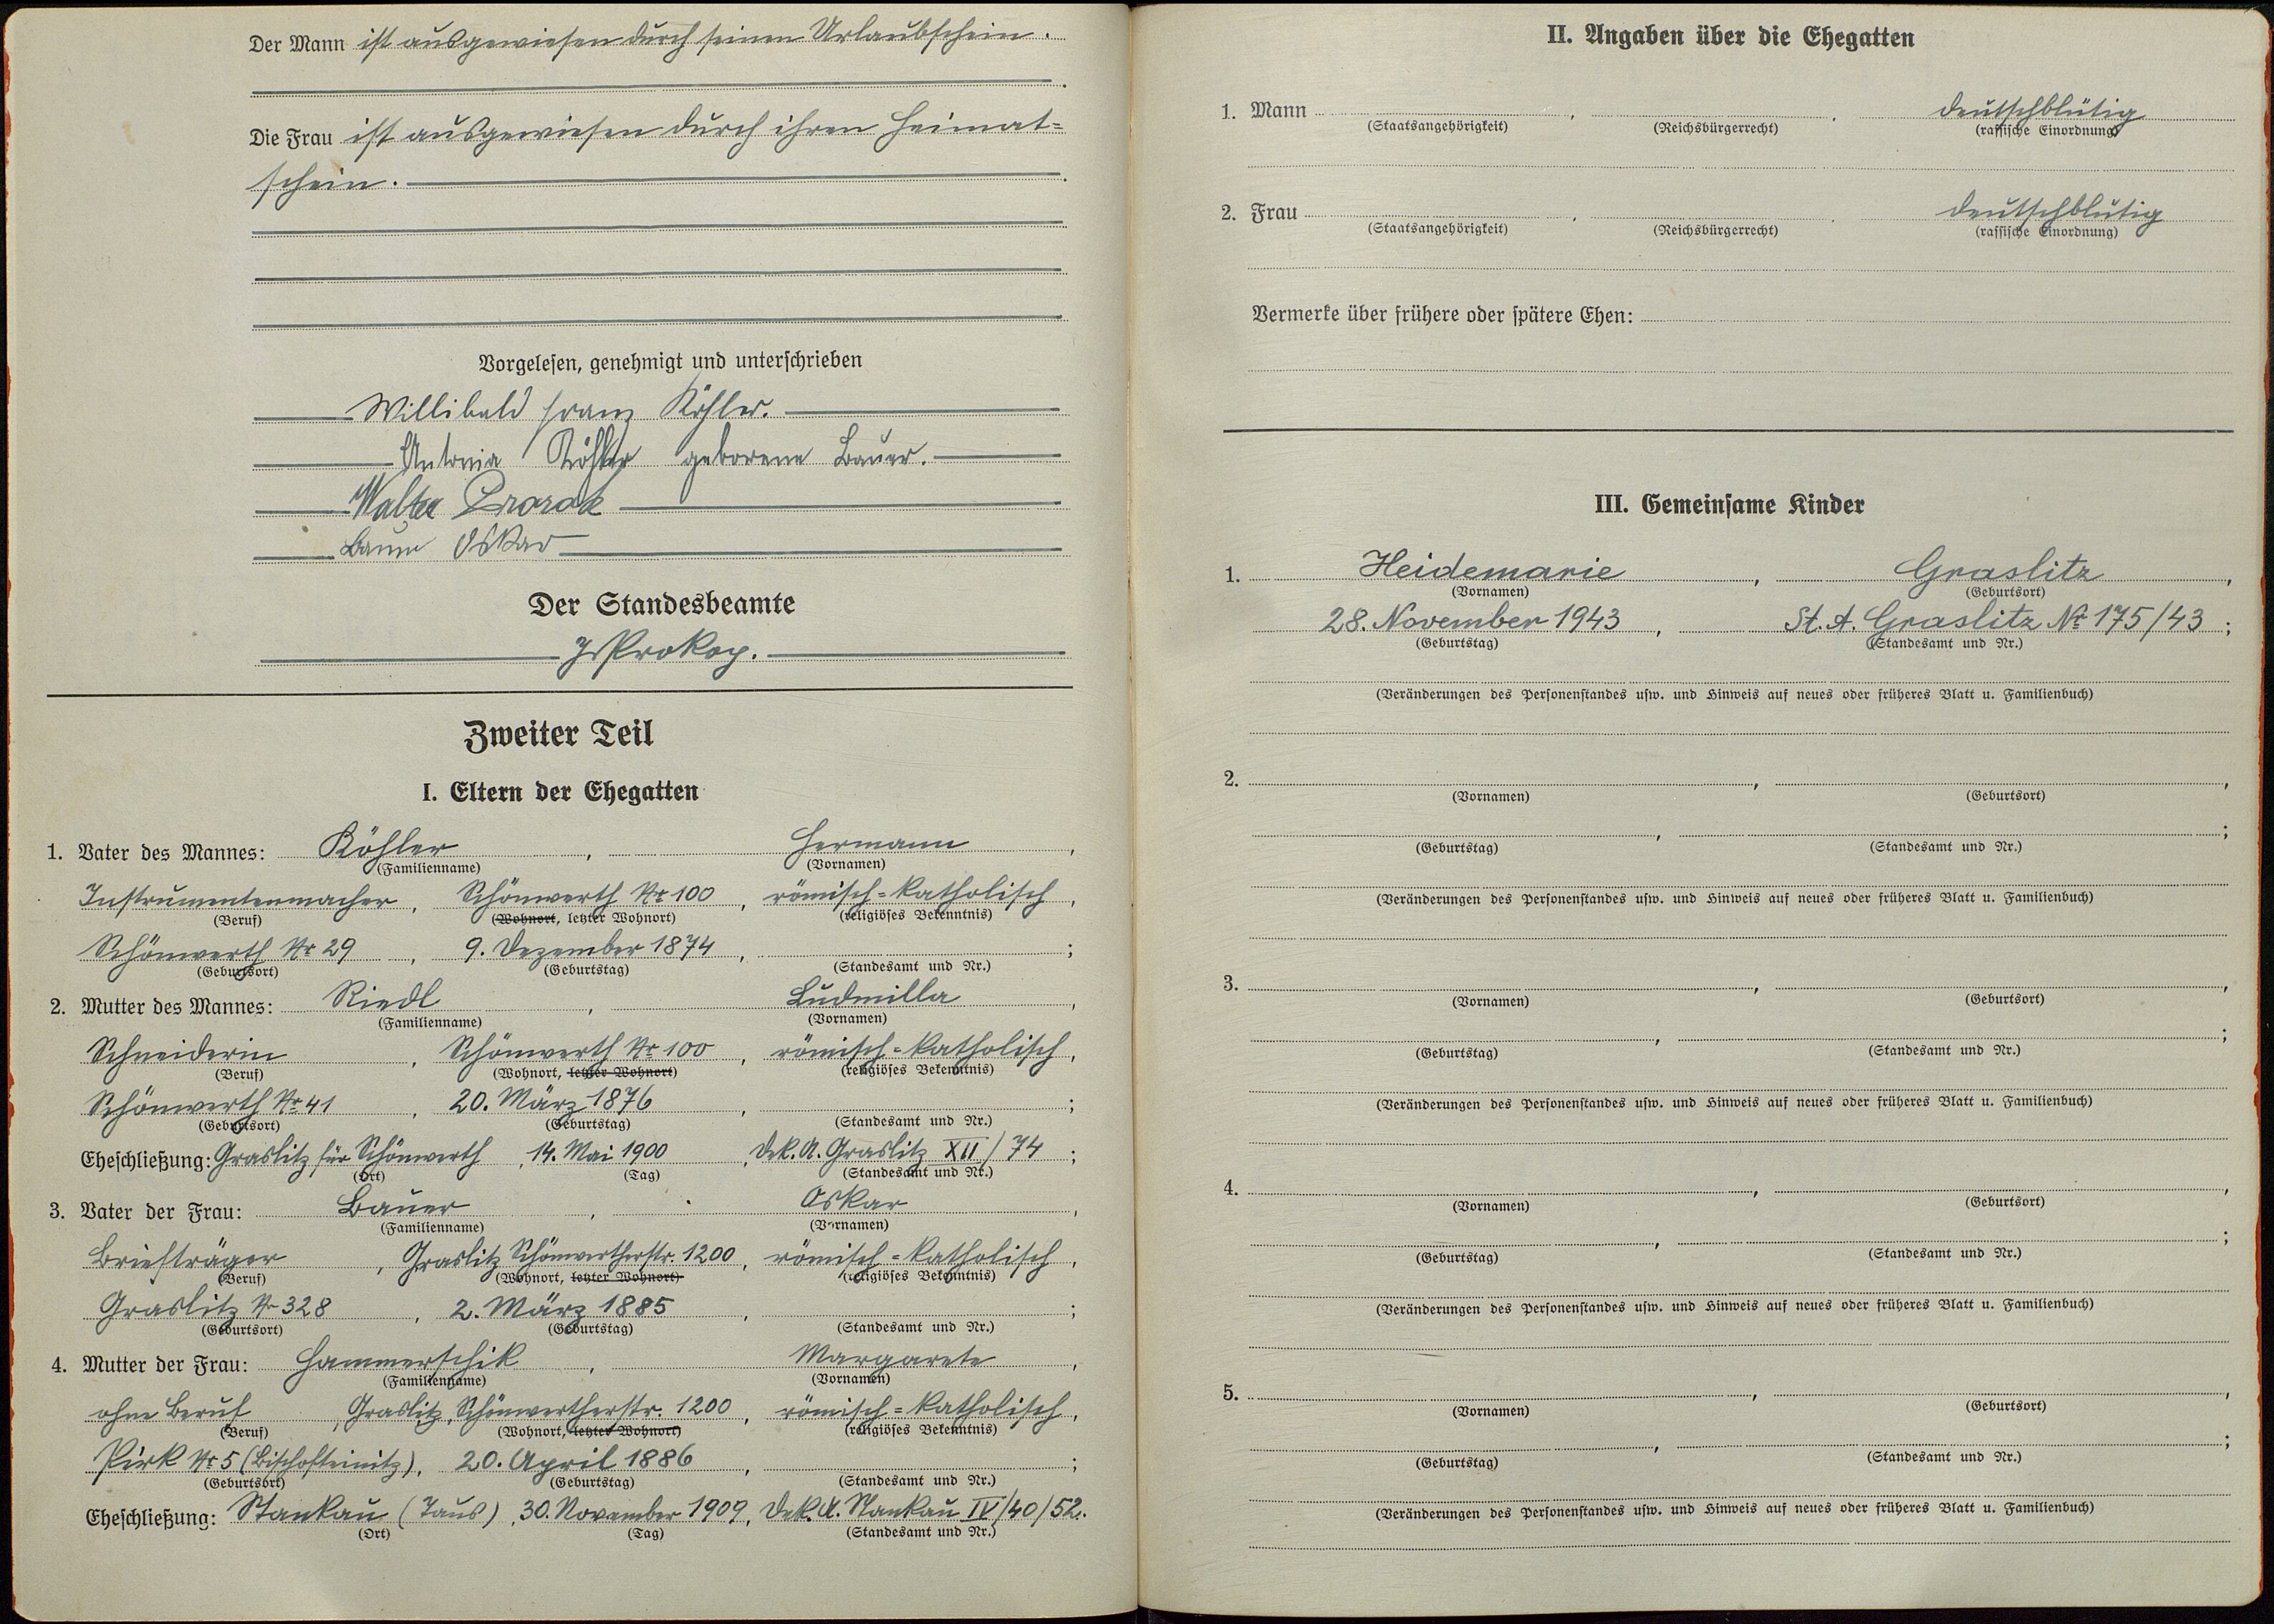 Der Mann ist ausgewiesen durch seinen Urlaubschein.
Die Frau ist ausgewiesen durch ihren Heimat-
schein.
Vorgelesen, genehmigt und unterschrieben
Willibald Franz Köhler.
Antonia Köhler geborene Bauer.
Walter
Bauer Oskar
Der Standesbeamte
Prokop.
Zweiter Teil
I. Eltern der Ehegatten
1. Vater des Mannes: Köhler, Hermann,
(Familienname) (Vornamen)
Instrumentenmacher, Schönwerth Nr 100, römisch-katholisch,
(Beruf) (Wohnort, letzter Wohnort) (religiöses Bekenntnis)
Schönwerth Nr 29, 9. Dezember 1874, ;
(Geburtsort) (Geburtstag) (Standesamt und Nr.)
2. Mutter des Mannes: Riedl, Ludmilla,
(Familienname) (Vornamen)
Schneiderin, Schönwerth Nr 100, römisch-katholisch,
(Beruf) (Wohnort, letzter Wohnort) (religiöses Bekenntnis)
Schönwerth Nr 41, 20. März 1876, ;
(Geburtsort) (Geburtstag) (Standesamt und Nr.)
Eheschließung: Graslitz für Schönwerth, 14. Mai 1900, Dek. A. Graslitz XII/74;
(Ort) (Tag) (Standesamt und Nr.)
3. Vater der Frau: Bauer, Oskar,
(Familienname) (Vornamen)
Briefträger, Graslitz Schönwertherstr. 1200, römisch-katholisch,
(Beruf) (Wohnort, letzter Wohnort) (religiöses Bekenntnis)
Graslitz Nr 328, 2. März 1885, ;
(Geburtsort) (Geburtstag) (Standesamt und Nr.)
4. Mutter der Frau: Hammerschik, Margarete,
(Familienname) (Vornamen)
ohne Beruf, Graslitz, Schönwertherstr. 1200, römisch-katholisch,
(Beruf) (Wohnort, letzter Wohnort) (religiöses Bekenntnis)
Pirk Nr 5 (Bischofteinitz), 20. April 1886, ;
(Geburtsort) (Geburtstag) (Standesamt und Nr.)
Eheschließung: Stankau (Taus), 30. November 1909, Dek. A. Stankau IV/40/52.
(Ort) (Tag) (Standesamt und Nr.)
II. Angaben über die Ehegatten
1. Mann , , deutschblütig
(Staatsangehörigkeit) (Reichsbürgerrecht) (rassische Einordnung)
2. Frau , , deutschblütig
(Staatsangehörigkeit) (Reichsbürgerrecht) (rassische Einordnung)
Vermerke über frühere oder spätere Ehen:
III. Gemeinsame Kinder
1. Heidemarie, Graslitz,
(Vornamen) (Geburtsort)
28. November 1943, St. A. Graslitz Nr 175/43;
(Geburtstag) (Standesamt und Nr.)
(Veränderungen des Personenstandes usw. und Hinweis auf neues oder früheres Blatt u. Familienbuch)
2. , ,
(Vornamen) (Geburtsort)
, ;
(Geburtstag) (Standesamt und Nr.)
(Veränderungen des Personenstandes usw. und Hinweis auf neues oder früheres Blatt u. Familienbuch)
3. , ,
(Vornamen) (Geburtsort)
, ;
(Geburtstag) (Standesamt und Nr.)
(Veränderungen des Personenstandes usw. und Hinweis auf neues oder früheres Blatt u. Familienbuch)
4. , ,
(Vornamen) (Geburtsort)
, ;
(Geburtstag) (Standesamt und Nr.)
(Veränderungen des Personenstandes usw. und Hinweis auf neues oder früheres Blatt u. Familienbuch)
5. , ,
(Vornamen) (Geburtsort)
, ;
(Geburtstag) (Standesamt und Nr.)
(Veränderungen des Personenstandes usw. und Hinweis auf neues oder früheres Blatt u. Familienbuch)